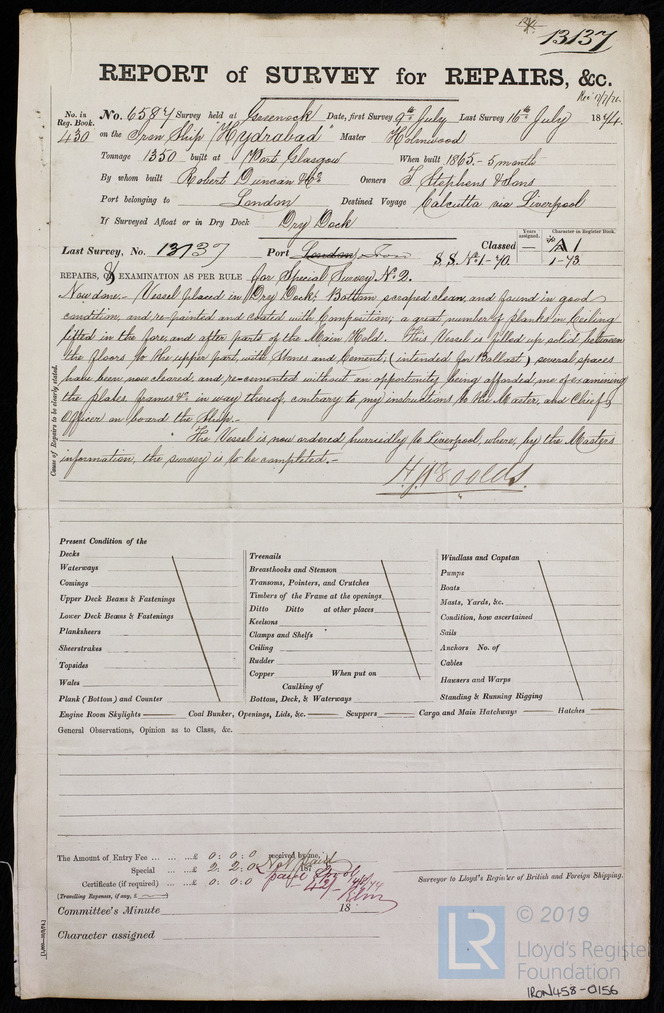 13137
REPORT of SURVEY for REPAIRS, &c.
Rec 17/7/74
No. in Reg. Book. No. 6584 Survey held at Greenock Date, first Survey 9th July Last Survey 16th July 1874
430 on the Iron Ship "Hydrabad" Master Holmwood
Tonnage 1350 built at Port Glasgow When built 1865 - 5 month
By whom built Robert Duncan & Co Owners T Stephens & Sons
Port belonging to London Destined Voyage Calcutta via Liverpool
If Surveyed Afloat or in Dry Dock Dry Dock
Years assigned. Character in Register Book.
Last Survey, No. 13137 Port London Classed — A1
S.S. No. 1-70. 1-73
REPAIRS, or EXAMINATION AS PER RULE for Special Survey No. 2.
Now done. - Vessel placed in Dry Dock; Bottom scraped clean, and found in good
condition, and re-painted and coated with Composition; a great number of planks in Ceiling
lifted in the fore, and after parts of the Main Hold. This Vessel is filled up solid between
the floors to the upper part, with Stones and Cement, (intended for Ballast) several spaces
have been now cleared, and re-cemented without an opportunity being afforded me of examining
the plates, frames &c in way thereof, contrary to my instructions to the Master, and Chief
Officer on board the Ship. -
The Vessel is now ordered hurriedly to Liverpool, where, by the Masters
information, the survey is to be completed. -
Cause of Repairs to be clearly stated.
Present Condition of the
Decks
Waterways
Comings
Upper Deck Beams & Fastenings
Lower Deck Beams & Fastenings
Planksheers
Sheerstrakes
Topsides
Wales
Plank (Bottom) and Counter
Treenails
Breasthooks and Stemson
Transoms, Pointers, and Crutches
Timbers of the Frame at the openings
Ditto Ditto at other places
Keelsons
Clamps and Shelfs
Ceiling
Rudder
Copper When put on
Caulking of
Bottom, Deck, & Waterways
Windlass and Capstan
Pumps
Boats
Masts, Yards, &c.
Condition, how ascertained
Sails
Anchors No. of
Cables
Hawsers and Warps
Standing & Running Rigging
Engine Room Skylights — Coal Bunker, Openings, Lids, &c. — Scuppers — Cargo and Main Hatchways — Hatches —
General Observations, Opinion as to Class, &c.
The Amount of Entry Fee ... ... ...£ 0 : 0 : 0 received by me,
Special ... ...£ 2 : 2 : 0 Not paid 187
Certificate (if required) ... ...£ 0 : 0 : 0
(Travelling Expenses, if any, £ —)
Surveyor to Lloyd's Register of British and Foreign Shipping.
Committee's Minute 18
Character assigned
© 2019
LR Lloyd's Register
Foundation
IRON458-0156